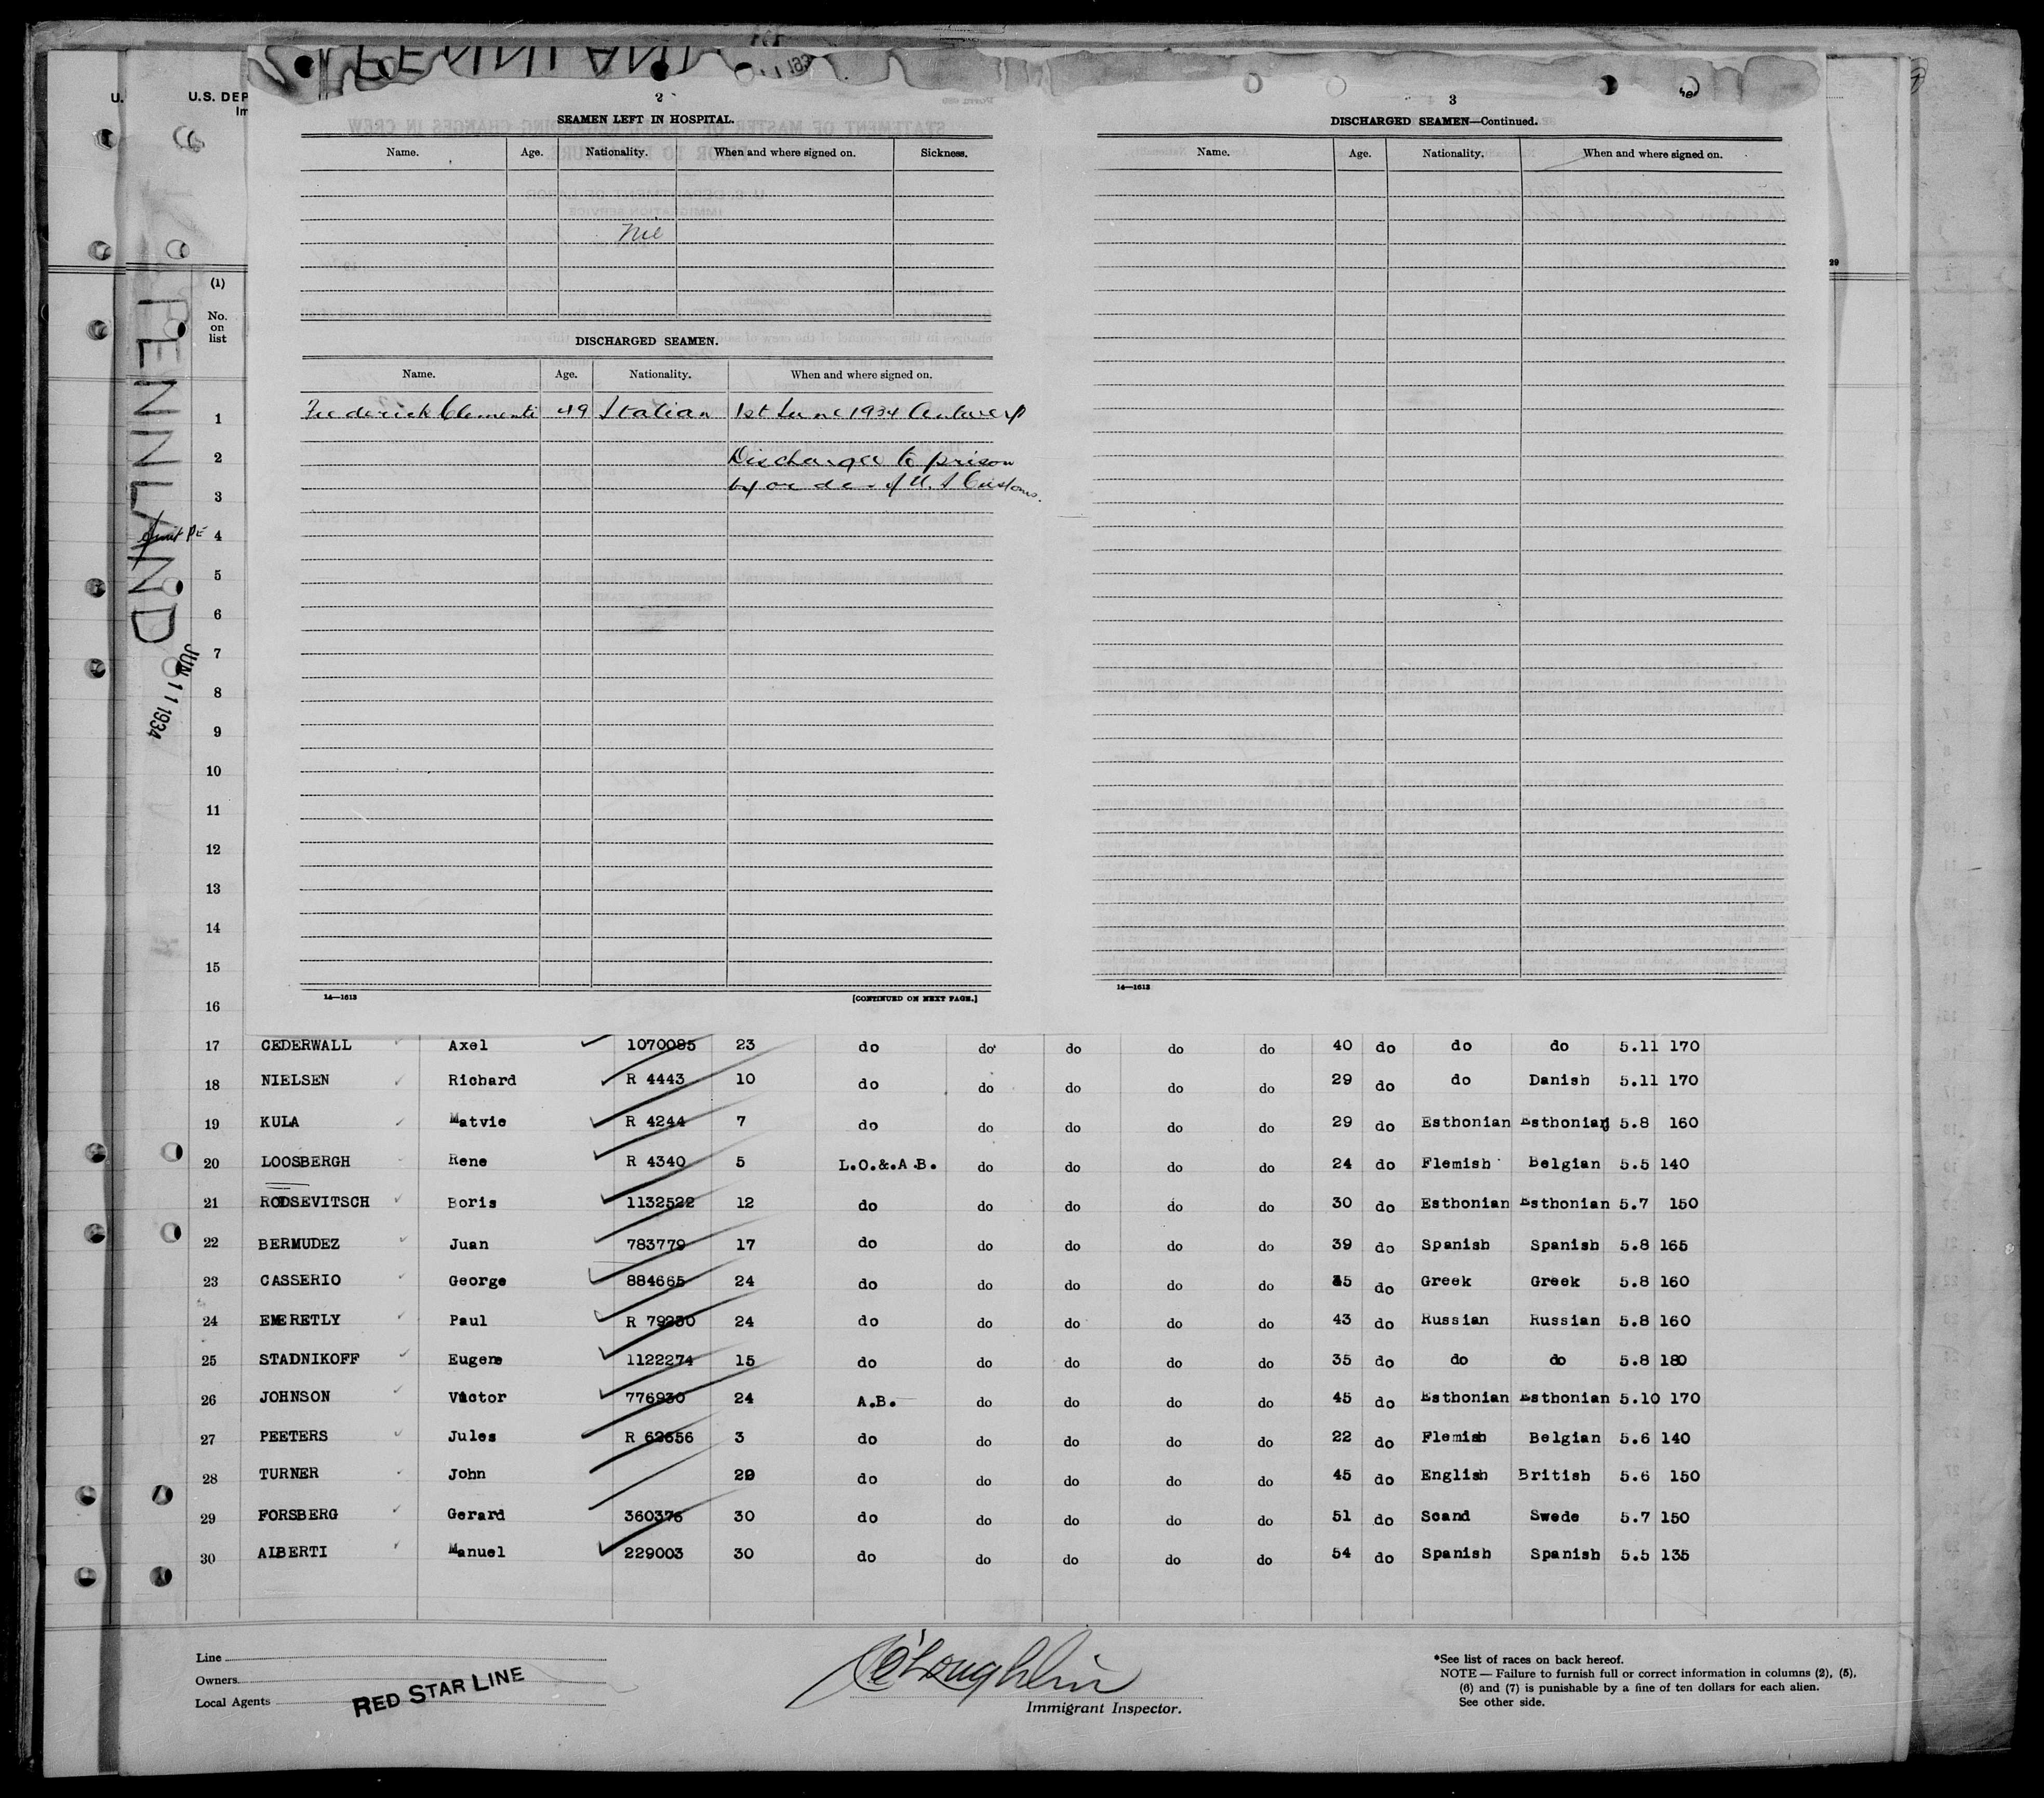 PENNLAND
U.
U.S. DEP
Im
2
SEAMEN LEFT IN HOSPITAL.
Name. Age. Nationality. When and where signed on. Sickness.
Nil
DISCHARGED SEAMEN.
Name. Age. Nationality. When and where signed on.
Frederick Clementi 49 Italian 1st June 1934 Antwerp
Discharged to prison
by order of U.S Customs.
14—1613 [CONTINUED ON NEXT PAGE.]
3
DISCHARGED SEAMEN—Continued.
Name. Age. Nationality. When and where signed on.
14—1613
29
PENNLAND
JUN 11 1934
(1)
No.
on
list
1
2
3
4
5
6
7
8
9
10
11
12
13
14
15
16
17 CEDERWALL Axel 1070085 23 do do do do do 40 do do do 5.11 170
18 NIELSEN Richard R 4443 10 do do do do do 29 do do Danish 5.11 170
19 KULA Matvie R 4244 7 do do do do do 29 do Esthonian Esthonian 5.8 160
20 LOOSBERGH Rene R 4340 5 L.O.&.A.B. do do do do 24 do Flemish Belgian 5.5 140
21 RODSEVITSCH Boris 1132522 12 do do do do do 30 do Esthonian Esthonian 5.7 150
22 BERMUDEZ Juan 783779 17 do do do do do 39 do Spanish Spanish 5.8 165
23 CASSERIO George 884665 24 do do do do do 45 do Greek Greek 5.8 160
24 EMERETLY Paul R 79230 24 do do do do do 43 do Russian Russian 5.8 160
25 STADNIKOFF Eugene 1122274 15 do do do do do 35 do do do 5.8 180
26 JOHNSON Victor 776930 24 A.B. do do do do 45 do Esthonian Esthonian 5.10 170
27 PEETERS Jules R 62656 3 do do do do do 22 do Flemish Belgian 5.6 140
28 TURNER John 29 do do do do do 45 do English British 5.6 150
29 FORSBERG Gerard 360376 30 do do do do do 51 do Scand Swede 5.7 150
30 ALBERTI Manuel 229003 30 do do do do do 54 do Spanish Spanish 5.5 135
Line
Owners
Local Agents
RED STAR LINE
O'Loughlin
Immigrant Inspector.
*See list of races on back hereof.
NOTE — Failure to furnish full or correct information in columns (2), (5),
(6) and (7) is punishable by a fine of ten dollars for each alien.
See other side.